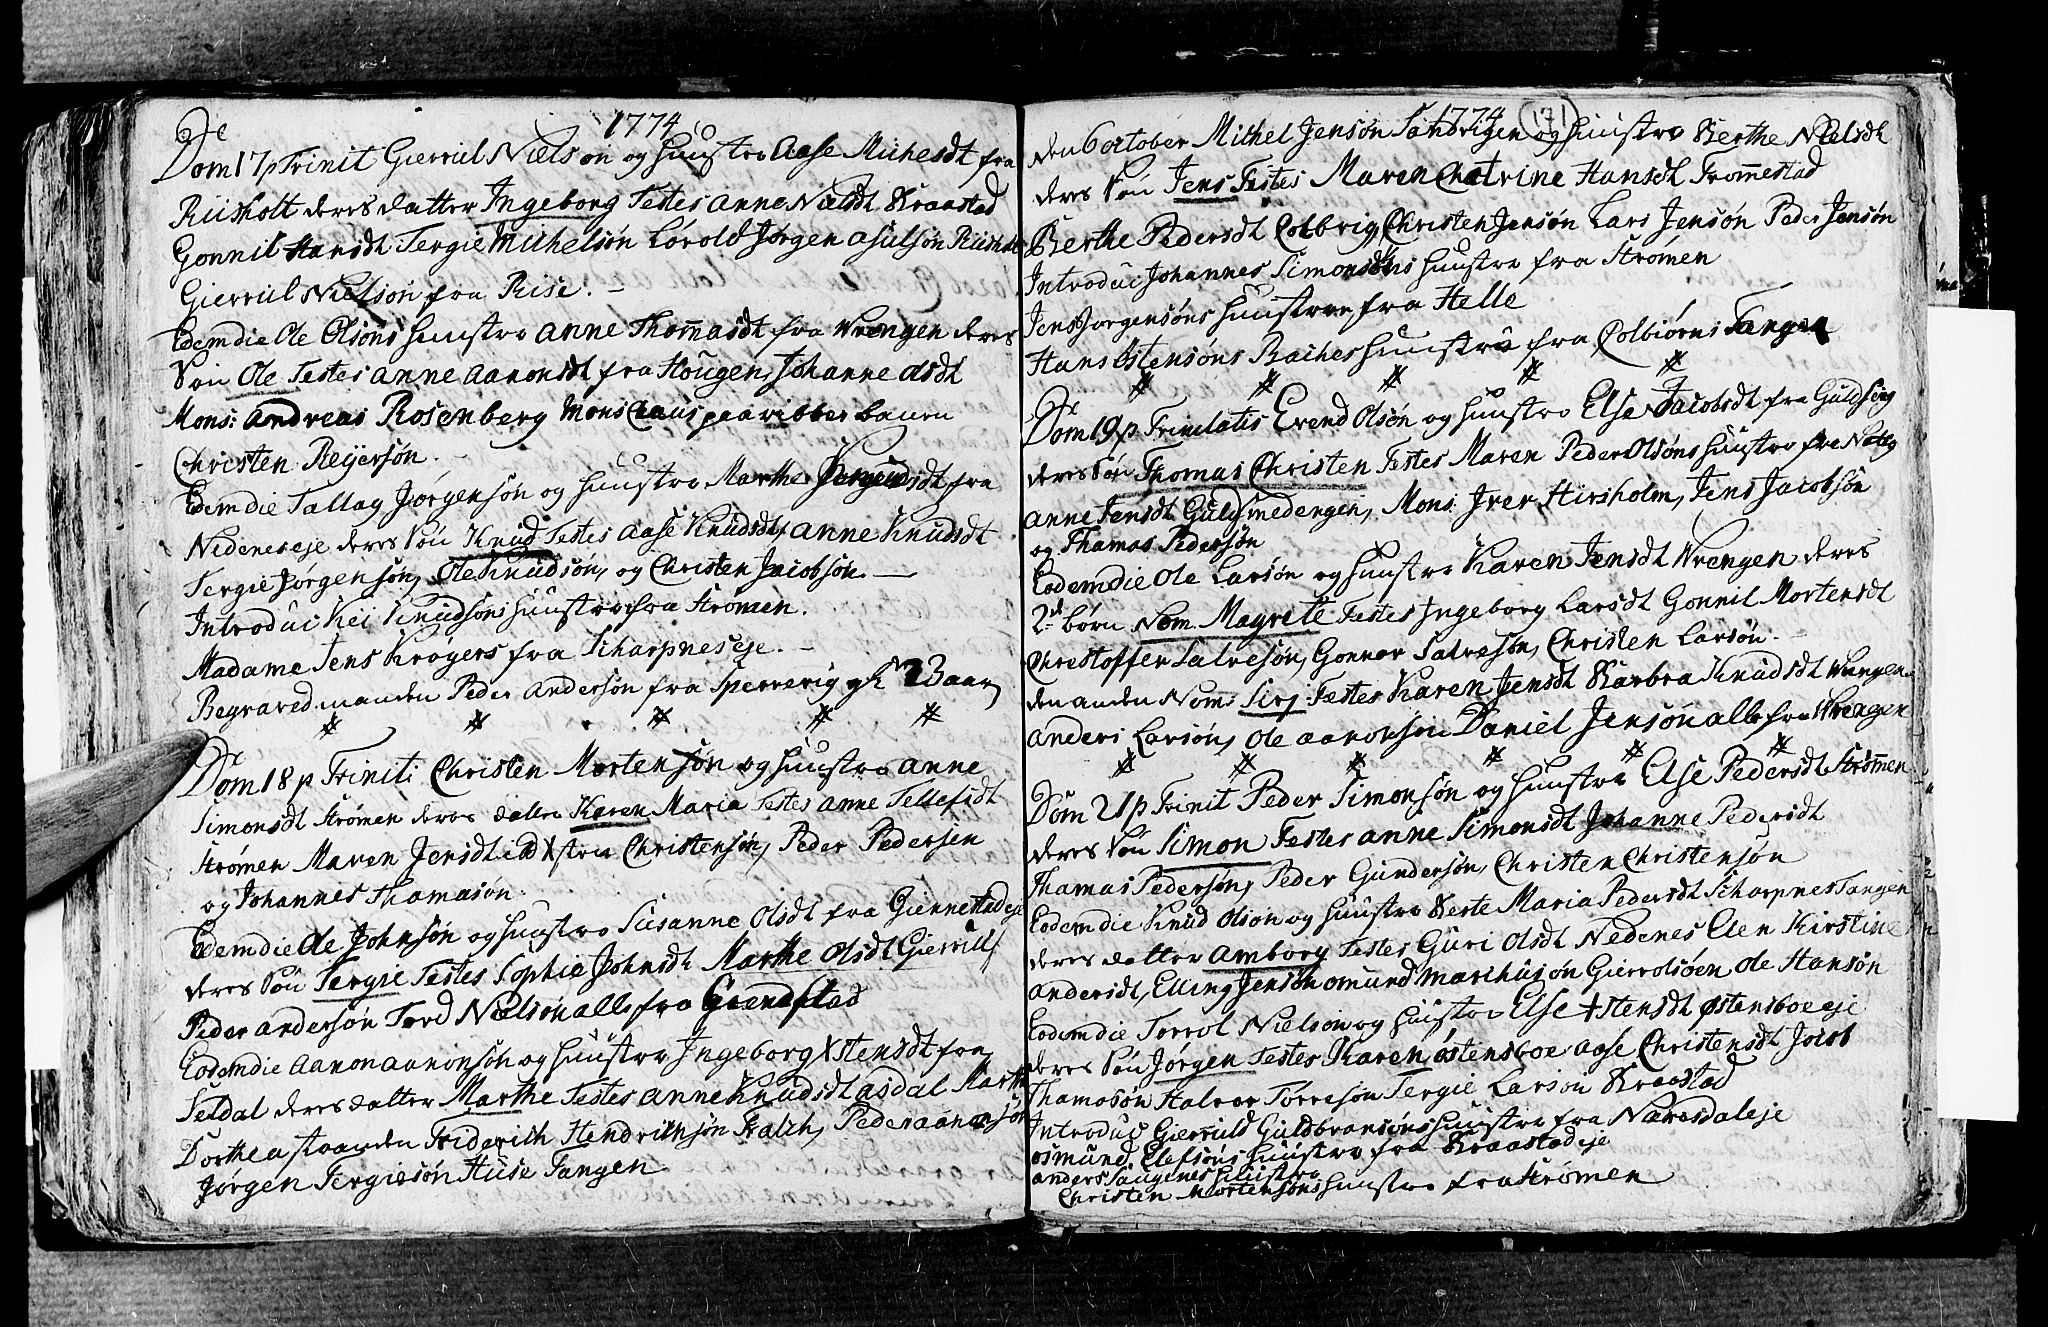 1774
De
Dom 17 p Trinit Gierrul Nielsøn og Huustro Aase Michelsdt fra
Riisholt deres datter Ingeborg Testes Anne Nielsdt Braastad
Gonnil Hansdt Tergie Michelsøn Lørold Jørgen Asulsøn Riisholt
Gierrul Nielsøn fra Rise. –
Eodem die Ole Olsøns Huustro Anne Thommasdt fra Wrengen deres
Søn Ole Testes Anne Aanonsdt fra Hougen, Johanne Olsdt
Mons: Andreas Rosenberg Mons Claus paa ribber bauen
Christen Reijersøn.
Eodem die Tallag Jørgensøn og Huustro Marthe fra
Nedeneseje deres Søn Knud Testes Aase Knudsdt, Anne Knudsdt
Tergie Jørgensøn, Ole Knudsøn, og Christen Jacobsøn. —
Introdui Kei Knudsøns Huustro fra Strømen.
Madame Jens Krøgers fra Scharpneseje. –
Begraved manden Peder Andersøn fra Sperrevig gl 73 aar
# # # # #
De
Dom 18 p Triniti Christen Mortensøn og Huustro Anne
Simonsdt Strømen deres datter Karen Maria Testes Anne Tellefsdt
Strømen Maren Jensdt ibd Xsten Christensøn, Peder Pedersen
og Johannes Thamasøn.
Eodem die Ole Johnsøn og Huustro Susanne Olsdt fra Giennestadeje
deres Søn Tergie Testes Sophie Johnsdt Marthe Olsdt Gierruls
Peder Andersøn Tord Nielsøn alle fra Grendstad
Eodem die Aanon Aanonsøn og Huustro Ingeborg Xstensdt fra
Seldal deres datter Marthe Testes Anne Knudsdt Asdal Marthe
Dorthea staanden Friderich Hendrichsøn Fralch, Peder Aanonsøn
Jørgen Tergiesøn Huse Tangen.
1774 171
den 6 October Michel Jensøn Sandvigen og Huustro Berthe Nielsdt
deres Søn Jens Testes Maren Chatrine Hansdt Trommestad
Berthe Pedersdt Colbrig, Christen Jensøn Lars Jensøn Peder Jensøn
Introdui Johannes Simonsøns Huustro fra Strømen
Jens Jørgensøns Huustroe fra Helle
Hans Østensøns Baches Huustro fra Colbiørns Tangen
# # # # #
De
Dom 19 p Trinitatis Evend Olsøn og Huustro Else Jacobsdt fra Guldsing
deres Søn Thomas Christen Testes Maren Peder Olsøns Huustro fra
Anne Jensdt Guldsmedengen, Mons: Iver Hirsholm, Jens Jacobsøn
og Thamas Pedersøn
Eodem die Ole Larsøn og Huustro Karen Jensdt Wrengen deres
2de børn Nom. Magrete Testes Ingeborg Larsdt Gonnil Mortensdt
Chrestoffer Salvesøn, Gonner Salvesøn, Christen Larsøn. –
den anden Nom: Sirj Testes Karen Jensdt Barbra Knudsdt Wrengen
Anders Larsøn, Ole Aanonsøn Daniel Jensøn alle fra Wrengen
# # # # # #
Dom 21 p Trinit Peder Simonsøn og Huustro Else Pedersdt Strømen
deres Søn Simon Testes Anne Simonsdt Johanne Pedersdt
Thamas Pedersøn, Peder Gundersøn, Christen Christensøn
Eodem die Knud Olsøn og Huustro Berte Maria Pedersdt Scharpnes Tangen
deres datter Amborg Testes Guri Olsdt Nedenes Elen Kirstine
Andersdt, Elling Jensøn Osmund Marchusøn Gierrolsøen Ole Hansøn
Eodem die Torrol Nielsøn og Huustro Else Xstensdt Østensboeeje
deres Søn Jørgen Testes Karen Østensboe Aase Christensdt Jacob
Thamasøn Halvor Torresøn Tergie Larsøn Braastad
Introdui Gierruld Guldbransøns Huustro fra Næresdaleje
Osmund Elefsøns Huustro fra Braastadeje
Anders Huustro
Christen Mortensøns Huustro fra Strømen